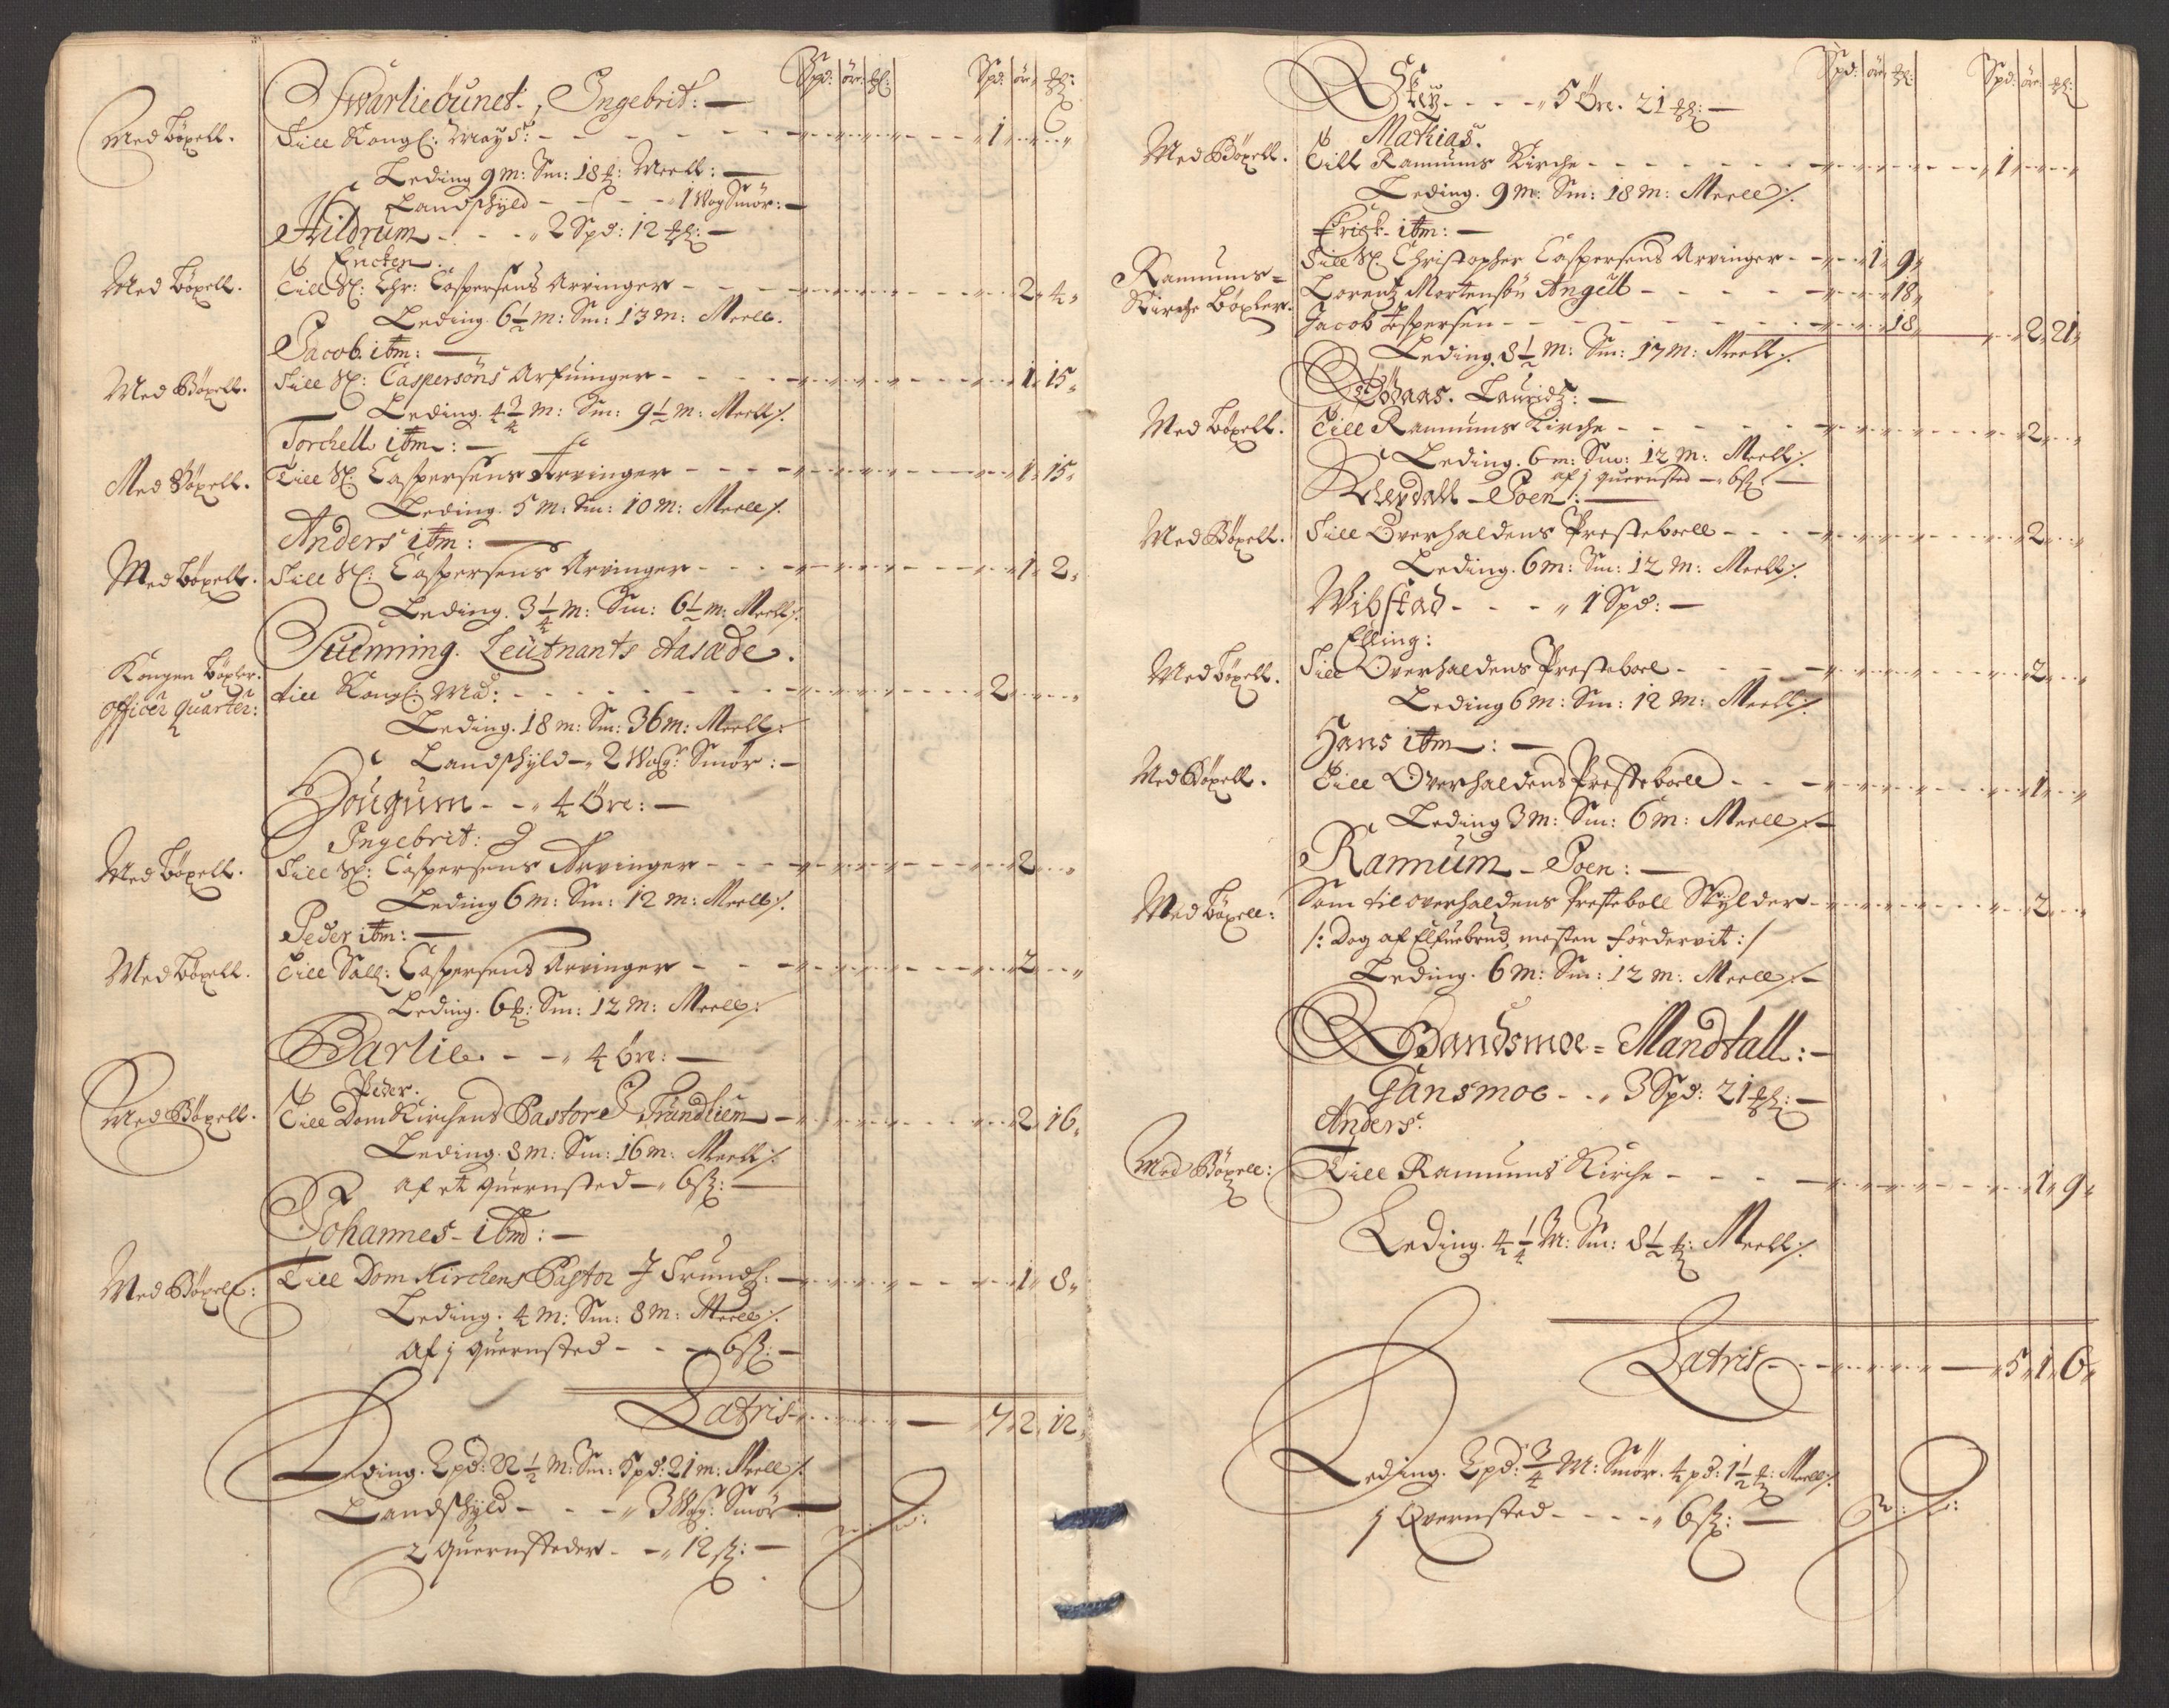 Spd: öre: ßl: Spd: öre ßl:
Swarliebunet. Ingebrit: —
Med böxell. Till Kongl: Mayst: - - - 1
Leding 9 m: Sm: 18 ß: Meell: —
Landschyld - - - 1 Wog Smör: —
Hildrum - - - 2 Spd: 12 ßl: —
Encken.
Med böxell. Till Sl: Chr: Caspersens Arvinger - - - 2 4
Leding 6 1/2 m: Sm: 13 m: Meell.
Jacob itm: —
Med Böxell. Till Sl: Caspersöns Arfuinger - - - 1 15
Leding. 4 3/4 m: Sm: 9 1/2 m: Meell:/.
Torchell itm: —
Med Böxell. Till Sl: Caspersens Arvinger - - - 1 15
Leding. 5 m: Sm: 10 m: Meell:/.
Anders itm: —
Med böxell. Till Sl: Caspersens Arvinger - - - 1 2
Leding. 3 1/4 m: Sm: 6 1/2 m: Meell:/.
Leutnants Aasæde.
Kongen böxler.
officer quarter: till Kongl: Mad: - - - 2
Leding. 18 m: Sm: 36 m: Meell:
Landschyld — 2 Wog: Smör: —
Hougum - - 4 Öre: —
Ingebrit:
Med böxell. Till Sl: Caspersens Arvinger - - - 2
Leding 6 m: Sm: 12 m: Meell:/.
Peder itm: —
Med böxell. Till Sall: Caspersens Arvinger - - - 2
Leding. 6 ß: Sm: 12 m: Meell:
Barlie. - - 4 öre: —
Peder.
Med Böxell. Till Dom Kirchens Pastor J Trundhiem — 2 16
Leding. 8 m: Sm: 16 m: Meell:/.
af et quernsted — 6 ß: —
Johannes - ibm: —
Med Böxell: Till Dom Kirchens Pastor J Trundh: — 1 8
Leding. 4 m: Sm: 8 m: Meell:/.
Af 1 quernsted - - - 6 ß: —
Latris — 7 2 12
Leding. 2 pd: 22 1/2 m: Sm: 5 pd: 21 m: Meell:/.
Landschyld - - - 3 Wog: Smör
2 quernsteder - - 12 ß: —
Spd: öre ßl: Spd: öre: ßl:
Schey - - - - 5 Öre. 21 ßl: —
Mathias.
Med Böxell. Till Rannums Kirche - - - 1
Leding. 9 m: Sm: 18 m: Meell:/.
Erick - itm: —
Till Sl: Christopher Caspersens Arvinger - - 1 9
Rannums-
Kirche böxler. Lorentz Mortensön Angell - - - 18
Jacob Jespersen - - - 18 2 21
Leding. 8 1/2 m: Sm: 17 m: Meell:/.
Lauridtz: —
Med böxell. Till Rannums Kirche - - - 2
Leding. 6 m: Sm: 12 m: Meell:/.
af 1 quernsted — 6 ß —
- Poen: —
Med Böxell. Till Overhaldens Presteboell - - - 2
Leding. 6 m: Sm: 12 m: Meell:/.
Wibstad - - - 1 Spd: —
Elling:
Med böxell. Till Overhaldens Presteboel - - - 2
Leding 6 m: Sm: 12 m: Meell:/.
Hans itm: —
Med Böxell. Till Overhaldens Presteboell - - - 1
Leding 3 m: Sm: 6 m: Meell: —
Rannum - Poen: —
Med böxell: Som til overhaldens Presteboll Skylder - - - 2
/: Dog af Elfuebrud, mesten fordervit :/
Leding. 6 m: Sm: 12 m: Meell: —
Gandsmoe = Mandtall: —
Gansmoe - - 3 Spd: 21 ßl: —
Anders:
Med Böxell: Till Rannums Kirche - - - 1 9
Leding. 4 1/4 M: Sm: 8 1/2 ß: Meell:/.
Latris - - - 5 1 6
Leding. 2 pd: 3/4 M: Smör. 4 pd: 1 1/2 ß: Meell:/
1 Qvernsted - - - 6 ß: —